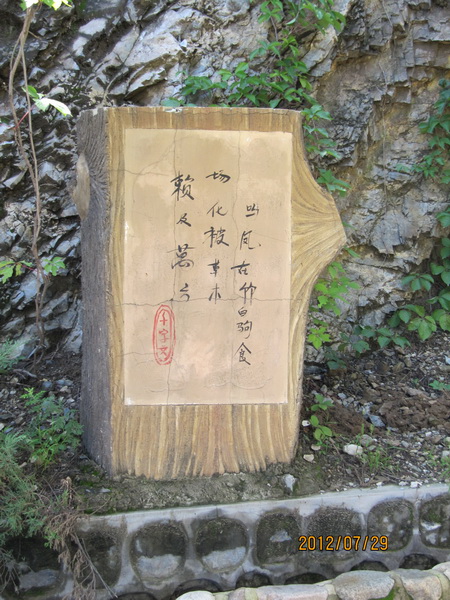 鸣凤在竹白驹食
场化被草木
賴及萬方
千字文
2012/07/29